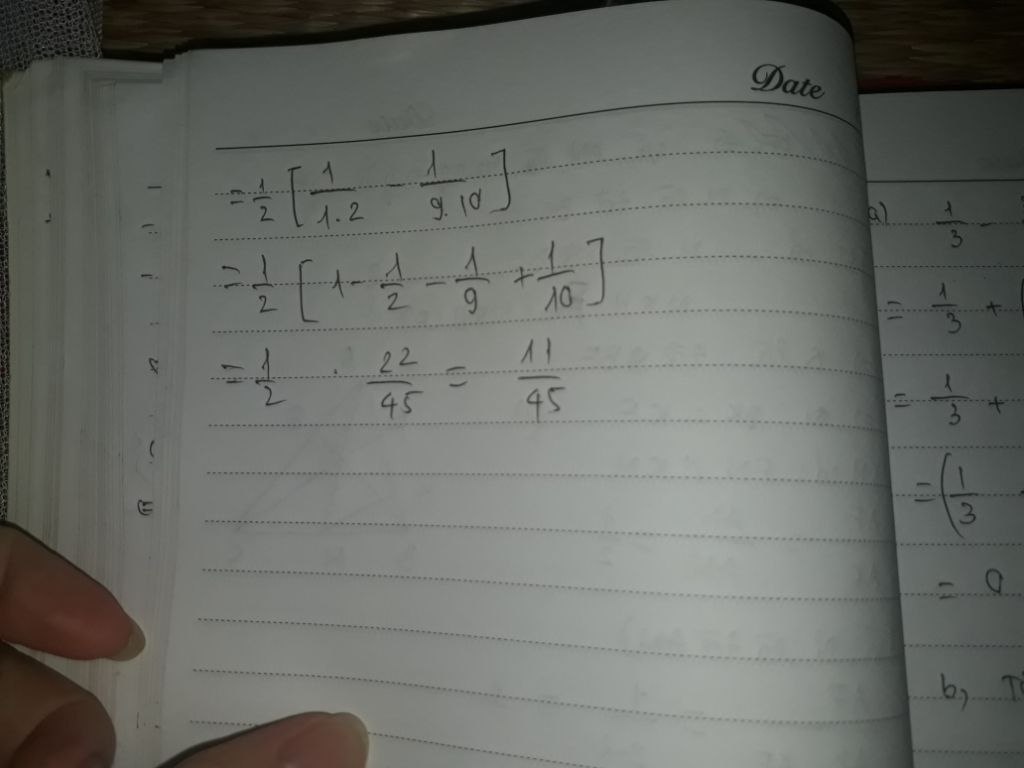 Date
= 1/2 [ 1/1.2 - 1/9.10 ]
= 1/2 [ 1 - 1/2 - 1/9 + 1/10 ]
= 1/2 . 22/45 = 11/45
a) 1/3 -
= 1/3 + (
= 1/3 +
= ( 1/3
= 0
b,